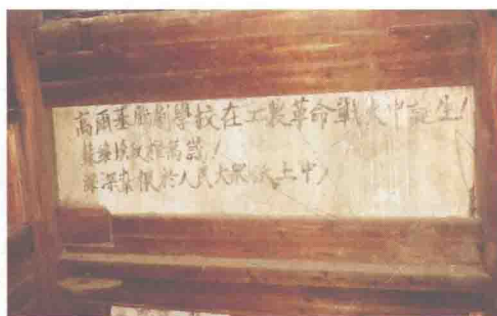 高爾基戲劇學校在工農革命戰火中誕生!
蘇維埃政權萬歲!
深深紮根於人民大眾沃土中